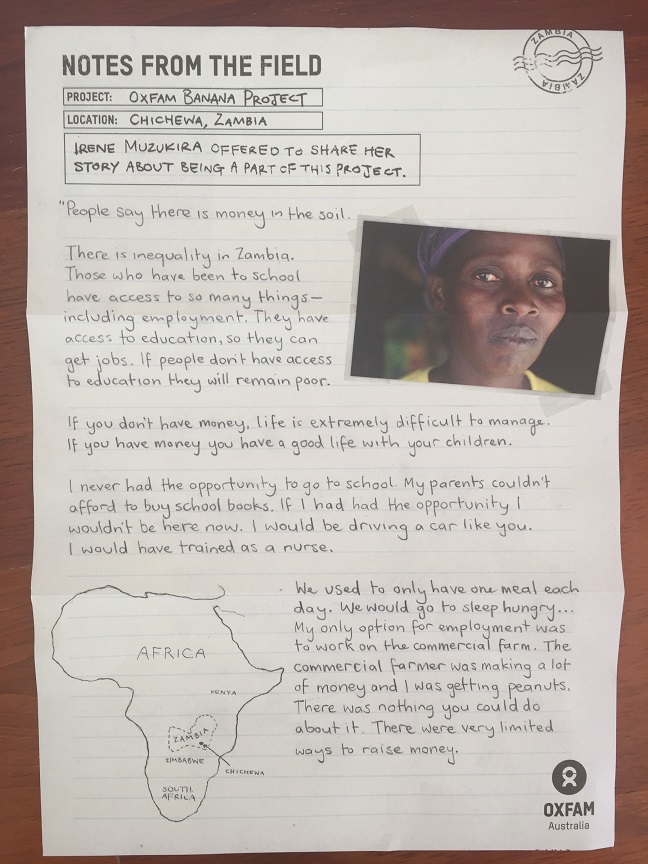 ZAMBIA
ZAMBIA
NOTES FROM THE FIELD
PROJECT: OXFAM BANANA PROJECT
LOCATION: CHICHEWA, ZAMBIA
IRENE MUZUKIRA OFFERED TO SHARE HER
STORY ABOUT BEING A PART OF THIS PROJECT.
"People say there is money in the soil.
There is inequality in Zambia.
Those who have been to school
have access to so many things—
including employment. They have
access to education, so they can
get jobs. If people don't have access
to education they will remain poor.
If you don't have money, life is extremely difficult to manage.
If you have money you have a good life with your children.
I never had the opportunity to go to school. My parents couldn't
afford to buy school books. If I had had the opportunity I
wouldn't be here now. I would be driving a car like you.
I would have trained as a nurse.
We used to only have one meal each
day. We would go to sleep hungry...
My only option for employment was
to work on the commercial farm. The
commercial farmer was making a lot
of money and I was getting peanuts.
There was nothing you could do
about it. There were very limited
ways to raise money.
AFRICA
KENYA
ZAMBIA
ZIMBABWE
CHICHEWA
SOUTH
AFRICA
OXFAM
Australia